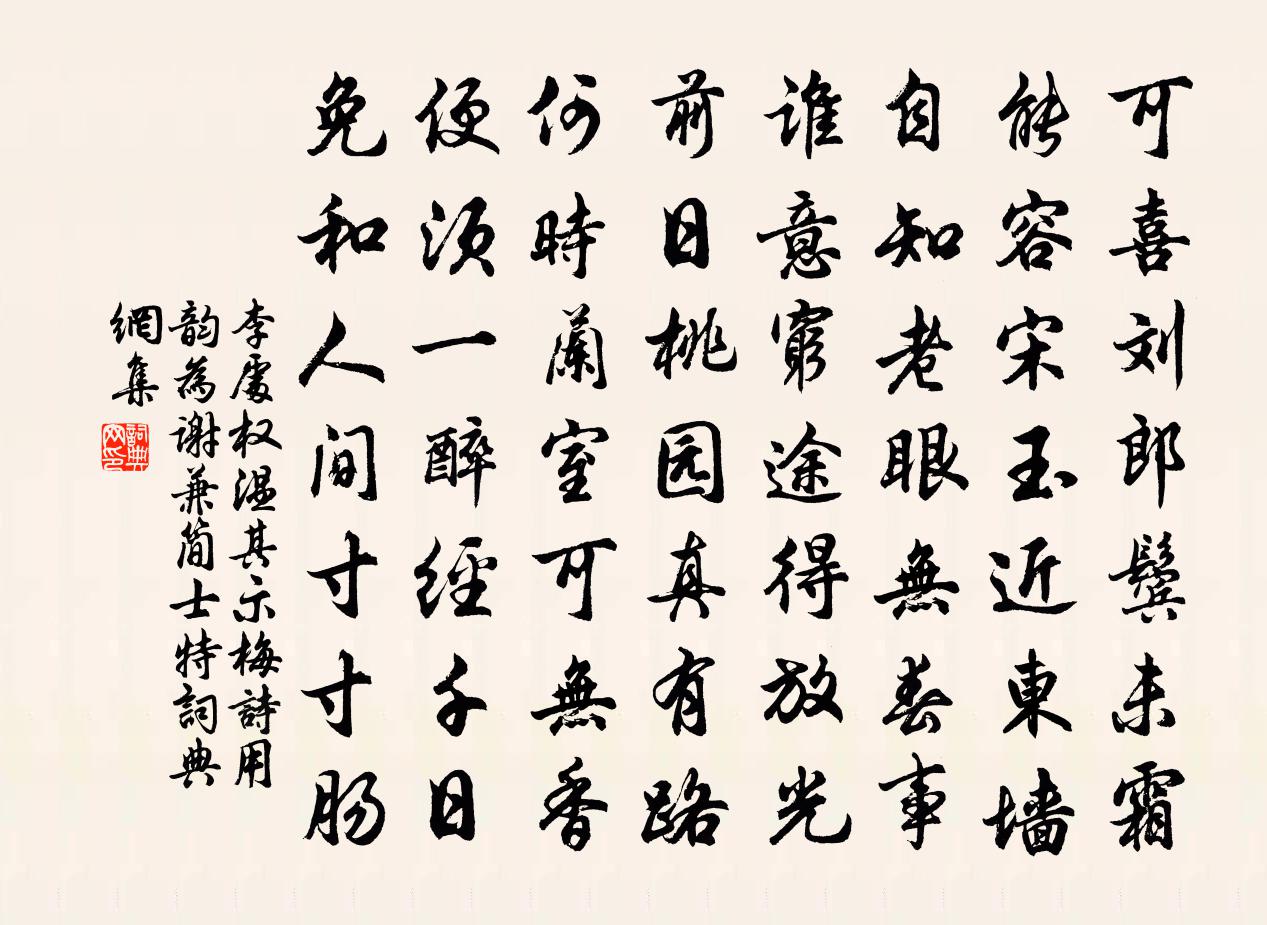 可喜刘郎鬓未霜
能容宋玉近東墙
自知老眼無春事
谁意窮途得放光
前日桃园真有路
何時蘭室可無香
便须一醉經千日
免和人间寸寸肠
李處权温其示梅詩用
韵為谢兼简士特詞典
網集
詞典
网印